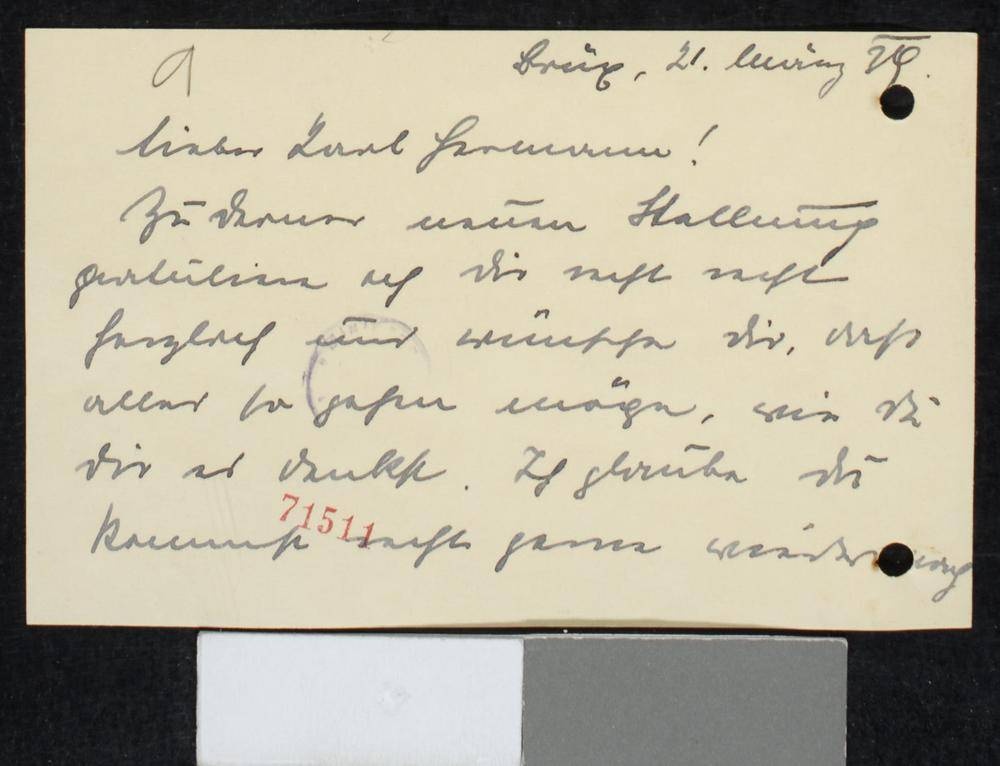 Brüx, 21. März 39.
Lieber Karl Hermann!
Zu deiner neuen Stellung
gratuliere ich dir recht recht
herzlich und wünsche dir, dass
alles so gehen möge, wie du
dir es denkst. Ich glaube du
kommst recht gerne wieder nach
71511